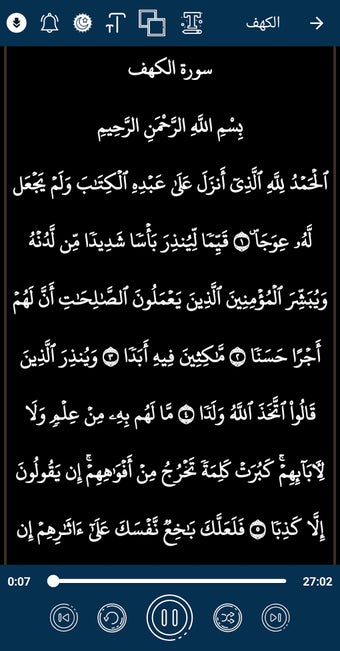 الكهف
سورة الكهف
بِسْمِ اللَّهِ الرَّحْمَنِ الرَّحِيمِ
ٱلْحَمْدُ لِلَّهِ ٱلَّذِىٓ أَنزَلَ عَلَىٰ عَبْدِهِ ٱلْكِتَٰبَ وَلَمْ يَجْعَل
لَّهُۥ عِوَجَاۜ ۝١ قَيِّمًا لِّيُنذِرَ بَأْسًا شَدِيدًا مِّن لَّدُنْهُ
وَيُبَشِّرَ ٱلْمُؤْمِنِينَ ٱلَّذِينَ يَعْمَلُونَ ٱلصَّٰلِحَٰتِ أَنَّ لَهُمْ
أَجْرًا حَسَنًا ۝٢ مَّٰكِثِينَ فِيهِ أَبَدًا ۝٣ وَيُنذِرَ ٱلَّذِينَ
قَالُوا۟ ٱتَّخَذَ ٱللَّهُ وَلَدًا ۝٤ مَّا لَهُم بِهِۦ مِنْ عِلْمٍ وَلَا
لِءَابَآئِهِمْۚ كَبُرَتْ كَلِمَةً تَخْرُجُ مِنْ أَفْوَٰهِهِمْۚ إِن يَقُولُونَ
إِلَّا كَذِبًا ۝٥ فَلَعَلَّكَ بَٰخِعٌ نَّفْسَكَ عَلَىٰٓ ءَاثَٰرِهِمْ إِن
0:07 27:02